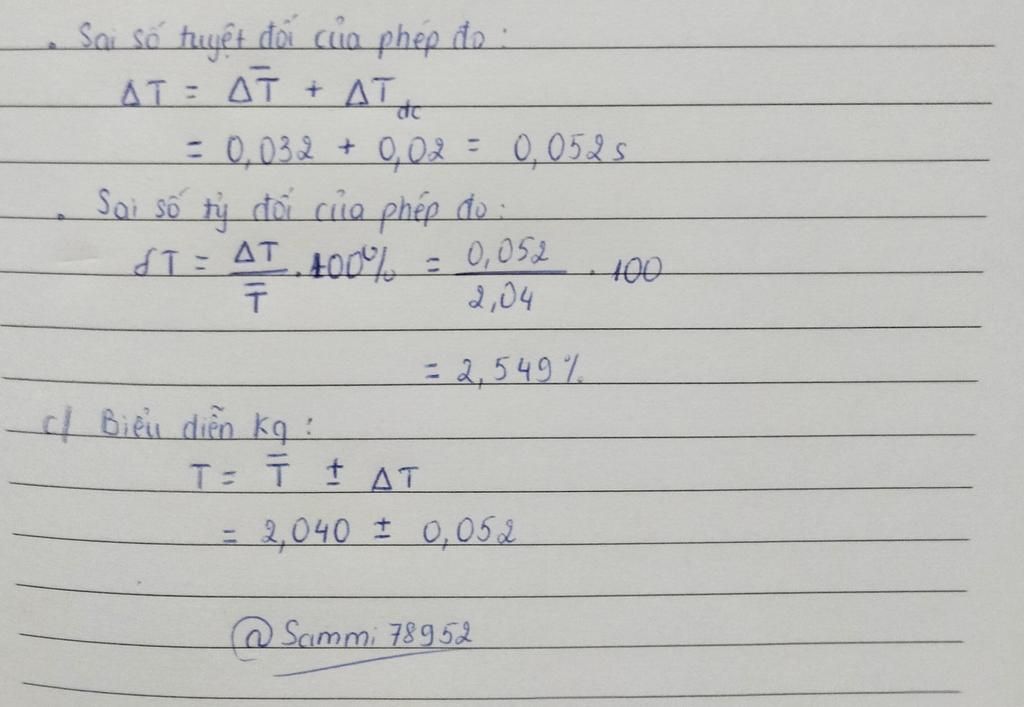 . Sai số tuyệt đối của phép đo :
ΔT = ΔT̄ + ΔT dc
= 0,032 + 0,02 = 0,052 s
. Sai số tỷ đối của phép đo :
δT = ΔT / T̄ . 100% = 0,052 / 2,04 . 100
= 2,549 %
c/ Biểu diễn kq :
T = T̄ ± ΔT
= 2,040 ± 0,052
@Sammi78952